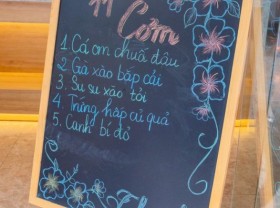 Cơm
1 Cá om chuấ đâu
2. Gà xào bắp cải
3. Su su xào tỏi
4. Trứng hấp củ quả
5. Canh bí đỏ